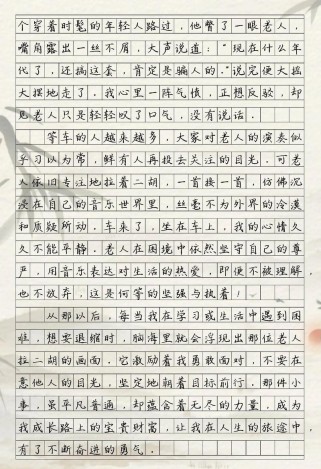 个穿着时髦的年轻人路过，他瞥了一眼老人，
嘴角露出一丝不屑，大声说道："现在什么年
代了，还搞这套，肯定是骗人的."说完便大摇
大摆地走了，我心里一阵气愤，正想反驳，却
见老人只是轻轻叹了口气，没有说话．
等车的人越来越多，大家对老人的演奏似
乎习以为常，鲜有人再投去关注的目光．可老
人依旧专注地拉着二胡，一首接一首，仿佛沉
浸在自己的音乐世界里，丝毫不为外界的冷漠
和质疑所动，车来了，坐在车上，我的心情久
久不能平静，老人在困境中依然坚守自己的尊
严，用音乐表达对生活的热爱，即便不被理解，
也不放弃，这是何等的坚强与执着！
从那以后，每当我在学习或生活中遇到困
难，想要退缩时，脑海里就会浮现出那位老人
拉二胡的画面．它激励着我勇敢面对，不要在
意他人的目光，坚定地朝着目标前行，那件小
事，虽平凡普通，却蕴含着无尽的力量，成为
我成长路上的宝贵财富，让我在人生的旅途中，
有了不断奋进的勇气．